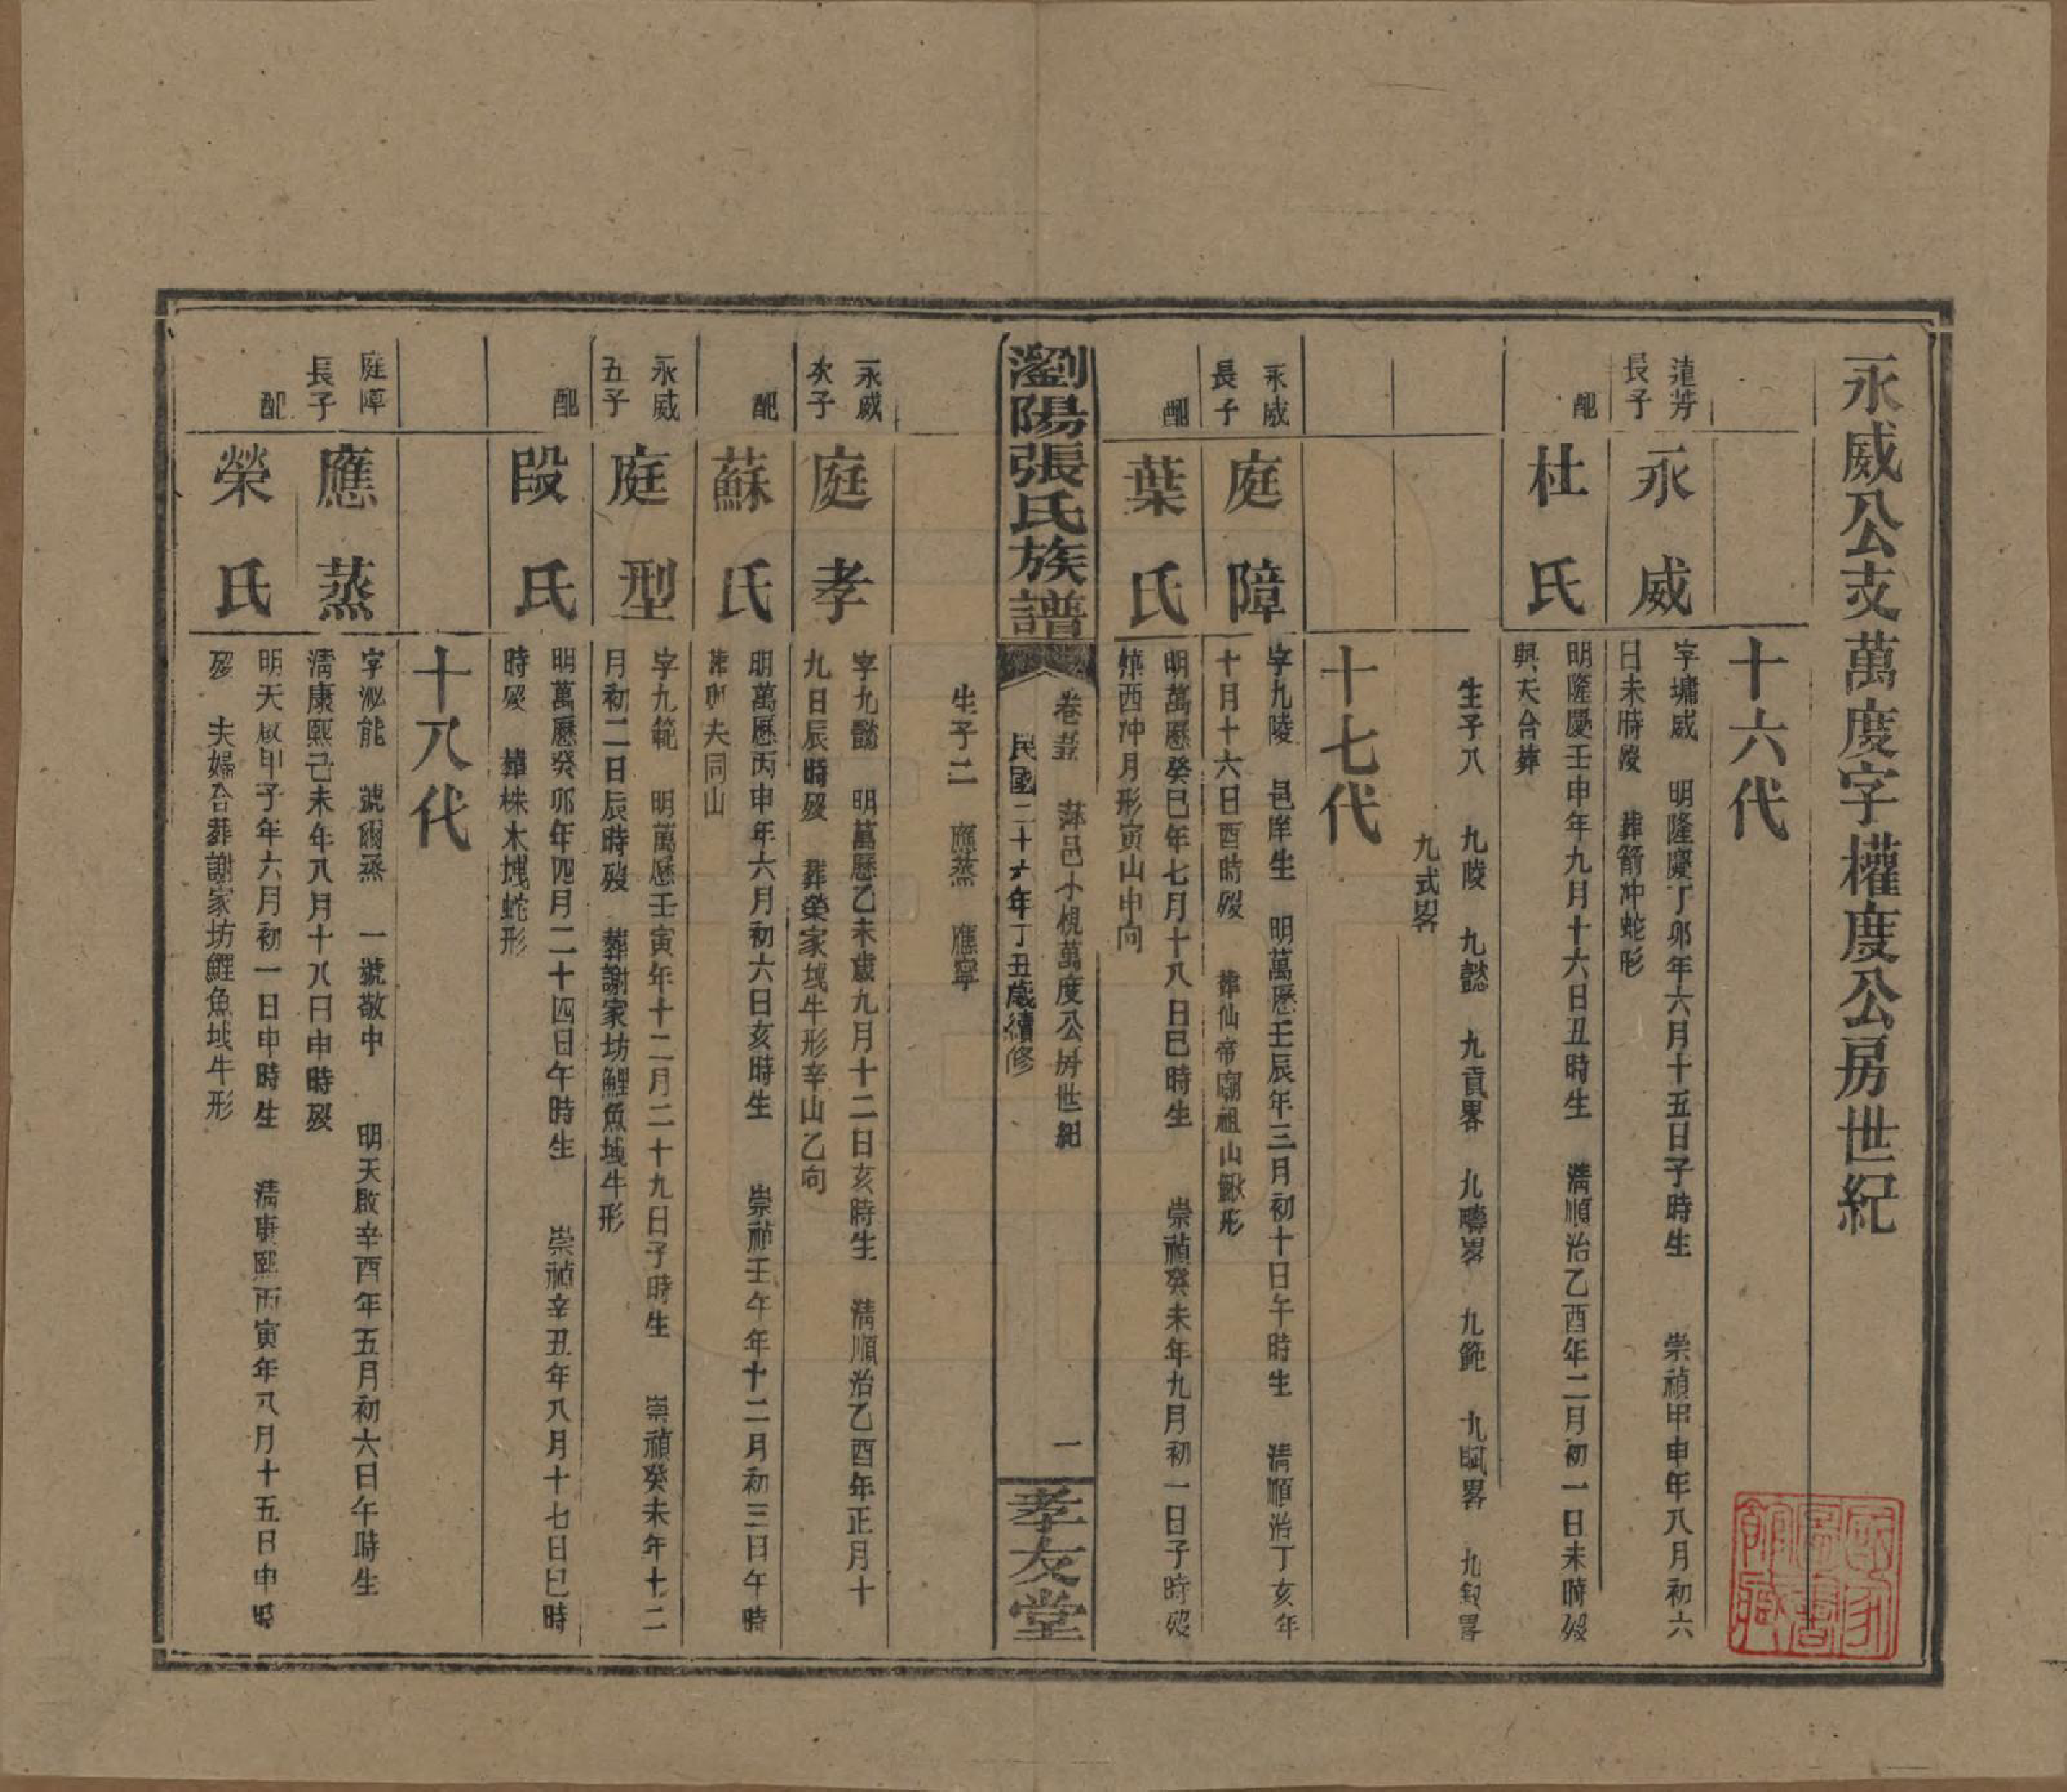 永威公支萬度字權度公房世紀
十六代
蓮芳
長子
永威
字墉威 明隆慶丁卯年六月十五日子時生 崇禎甲申年八月初六
日未時歿 葬箭冲蛇形
配
杜氏
明隆慶壬申年九月十六日丑時生 清順治乙酉年二月初一日未時歿
與夫合葬
生子八 九陵 九懿 九貢畧 九疇畧 九範 九賦畧 九叙畧
九式畧
十七代
永威
長子
庭障
字九陵 邑庠生 明萬歷壬辰年三月初十日午時生 清順治丁亥年
十月十六日酉時歿 葬仙帝廟祖山鰍形
配
葉氏
明萬歷癸巳年七月十八日巳時生 崇禎癸未年九月初一日子時歿
葬西冲月形寅山申向
瀏陽張氏族譜
卷 萍邑小梘萬度公房世紀
民國二十六年丁丑歲續修
一
孝友堂
生子二 應蒸 應寧
永威
次子
庭孝
字九懿 明萬歷乙未歲九月十二日亥時生 清順治乙酉年正月十
九日辰時歿 葬榮家城牛形辛山乙向
配
蘇氏
明萬歷丙申年六月初六日亥時生 崇禎壬午年十二月初三日午時
夫同山
永威
五子
庭型
字九範 明萬歷壬寅年十二月二十九日子時生 崇禎癸未年十二
月初二日辰時歿 葬謝家坊鯉魚城牛形
配
段氏
明萬歷癸卯年四月二十四日午時生 崇禎辛丑年八月十七日巳時
時歿 葬株木塊蛇形
十八代
庭障
長子
應蒸
字泌能 號爾蒸 一號敬中 明天啟辛酉年五月初六日午時生
清康熙己未年八月十八日申時歿
配
榮氏
明天啟甲子年六月初一日申時生 清康熙丙寅年八月十五日申時
歿 夫婦合葬謝家坊鯉魚城牛形